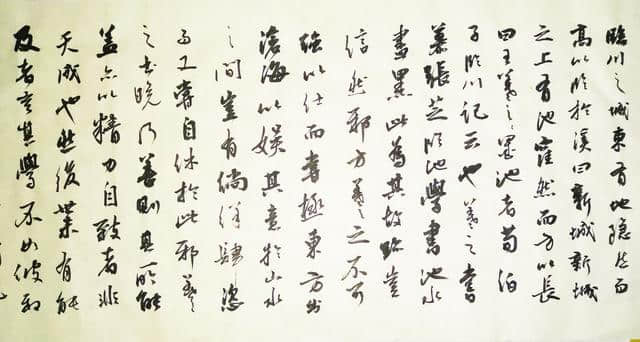 臨川之城東有地隱然而
高以臨於溪曰新城新城
之上有池窪然而方以長
曰王羲之之墨池者荀伯
子臨川記云也羲之嘗
慕張芝臨池學書池水
盡黑此為其故跡豈
信然邪方羲之之不可
強以仕而嘗極東方出
滄海以娛其意於山水
之間豈有徜徉肆恣
而又嘗自休於此邪羲
之書晚乃善則其所能
蓋亦以精力自致者非
天成也然後世有能
及者豈其學不如彼邪